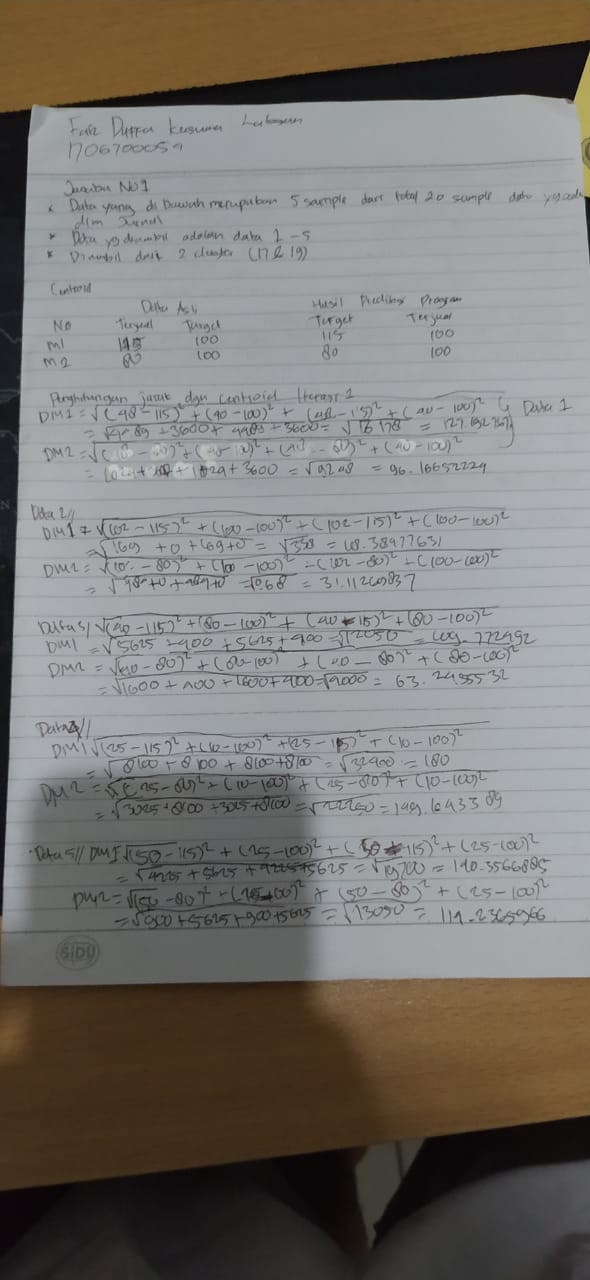 Faiz Daffa Kusuma
1706700059
Jawaban No 1
* Data yang di bawah merupakan 5 sample dari total 20 sample data yg ada
dlm Jurnal
* Data yg diambil adalah data 1 - 5
* Diambil dari 2 cluster (17 & 19)
Centroid
Data Asli Hasil Prediksi Program
No Terjual Target Target Terjual
m1 115 100 115 100
m2 80 100 80 100
Penghitungan jarak dgn Centroid Iterasi 1
DM1 = √(48-115)² + (40-100)² + (48-115)² + (40-100)² Data 1
+ 3600 + 4489 + 3600 =
DM2 =
+ 3600 = √9248 = 96.16652224
Data 2//
DM1 = √(102-115)² + (100-100)² + (102-115)² + (100-100)²
= √169 + 0 + 169 + 0 = √338 = 18.38477631
DM2 = - 80)² + (100-100)² + (102-80)² + (100-100)²
= √484 + 0 + 484 + 0 = √968 = 31.11269837
√(40-115)² + (80-100)² + (40-115)² + (80-100)²
DM1 = √5625 + 400 + 5625 + 400 = √12050 = 109.772492
DM2 = √(40-80)² + (80-100) + (40-80)² + (80-100)²
= √1600 + 400 + 1600 + 400 = √4000 = 63.2455532
Data //
DM1 √(25-115)² + (10-100)² + (25-115)² + (10-100)²
= √8100 + 8100 + 8100 + 8100 = √32400 = 180
DM2 = √(25-80)² + (10-100)² + (25-80)² + (10-100)²
= √3025 + 8100 + 3025 + 8100 = √22250 = 149.1643389
Data 5// DM1 √(50-115)² + (25-100)² + (50-115)² + (25-100)²
= √4225 + 5625 + 4225 + 5625 = √19700 = 140.3566885
DM2 = √(50-80)² + (25-100)² + (50-80)² + (25-100)²
= √900 + 5625 + 900 + 5625 = √13050 = 114.2365966
SIDU